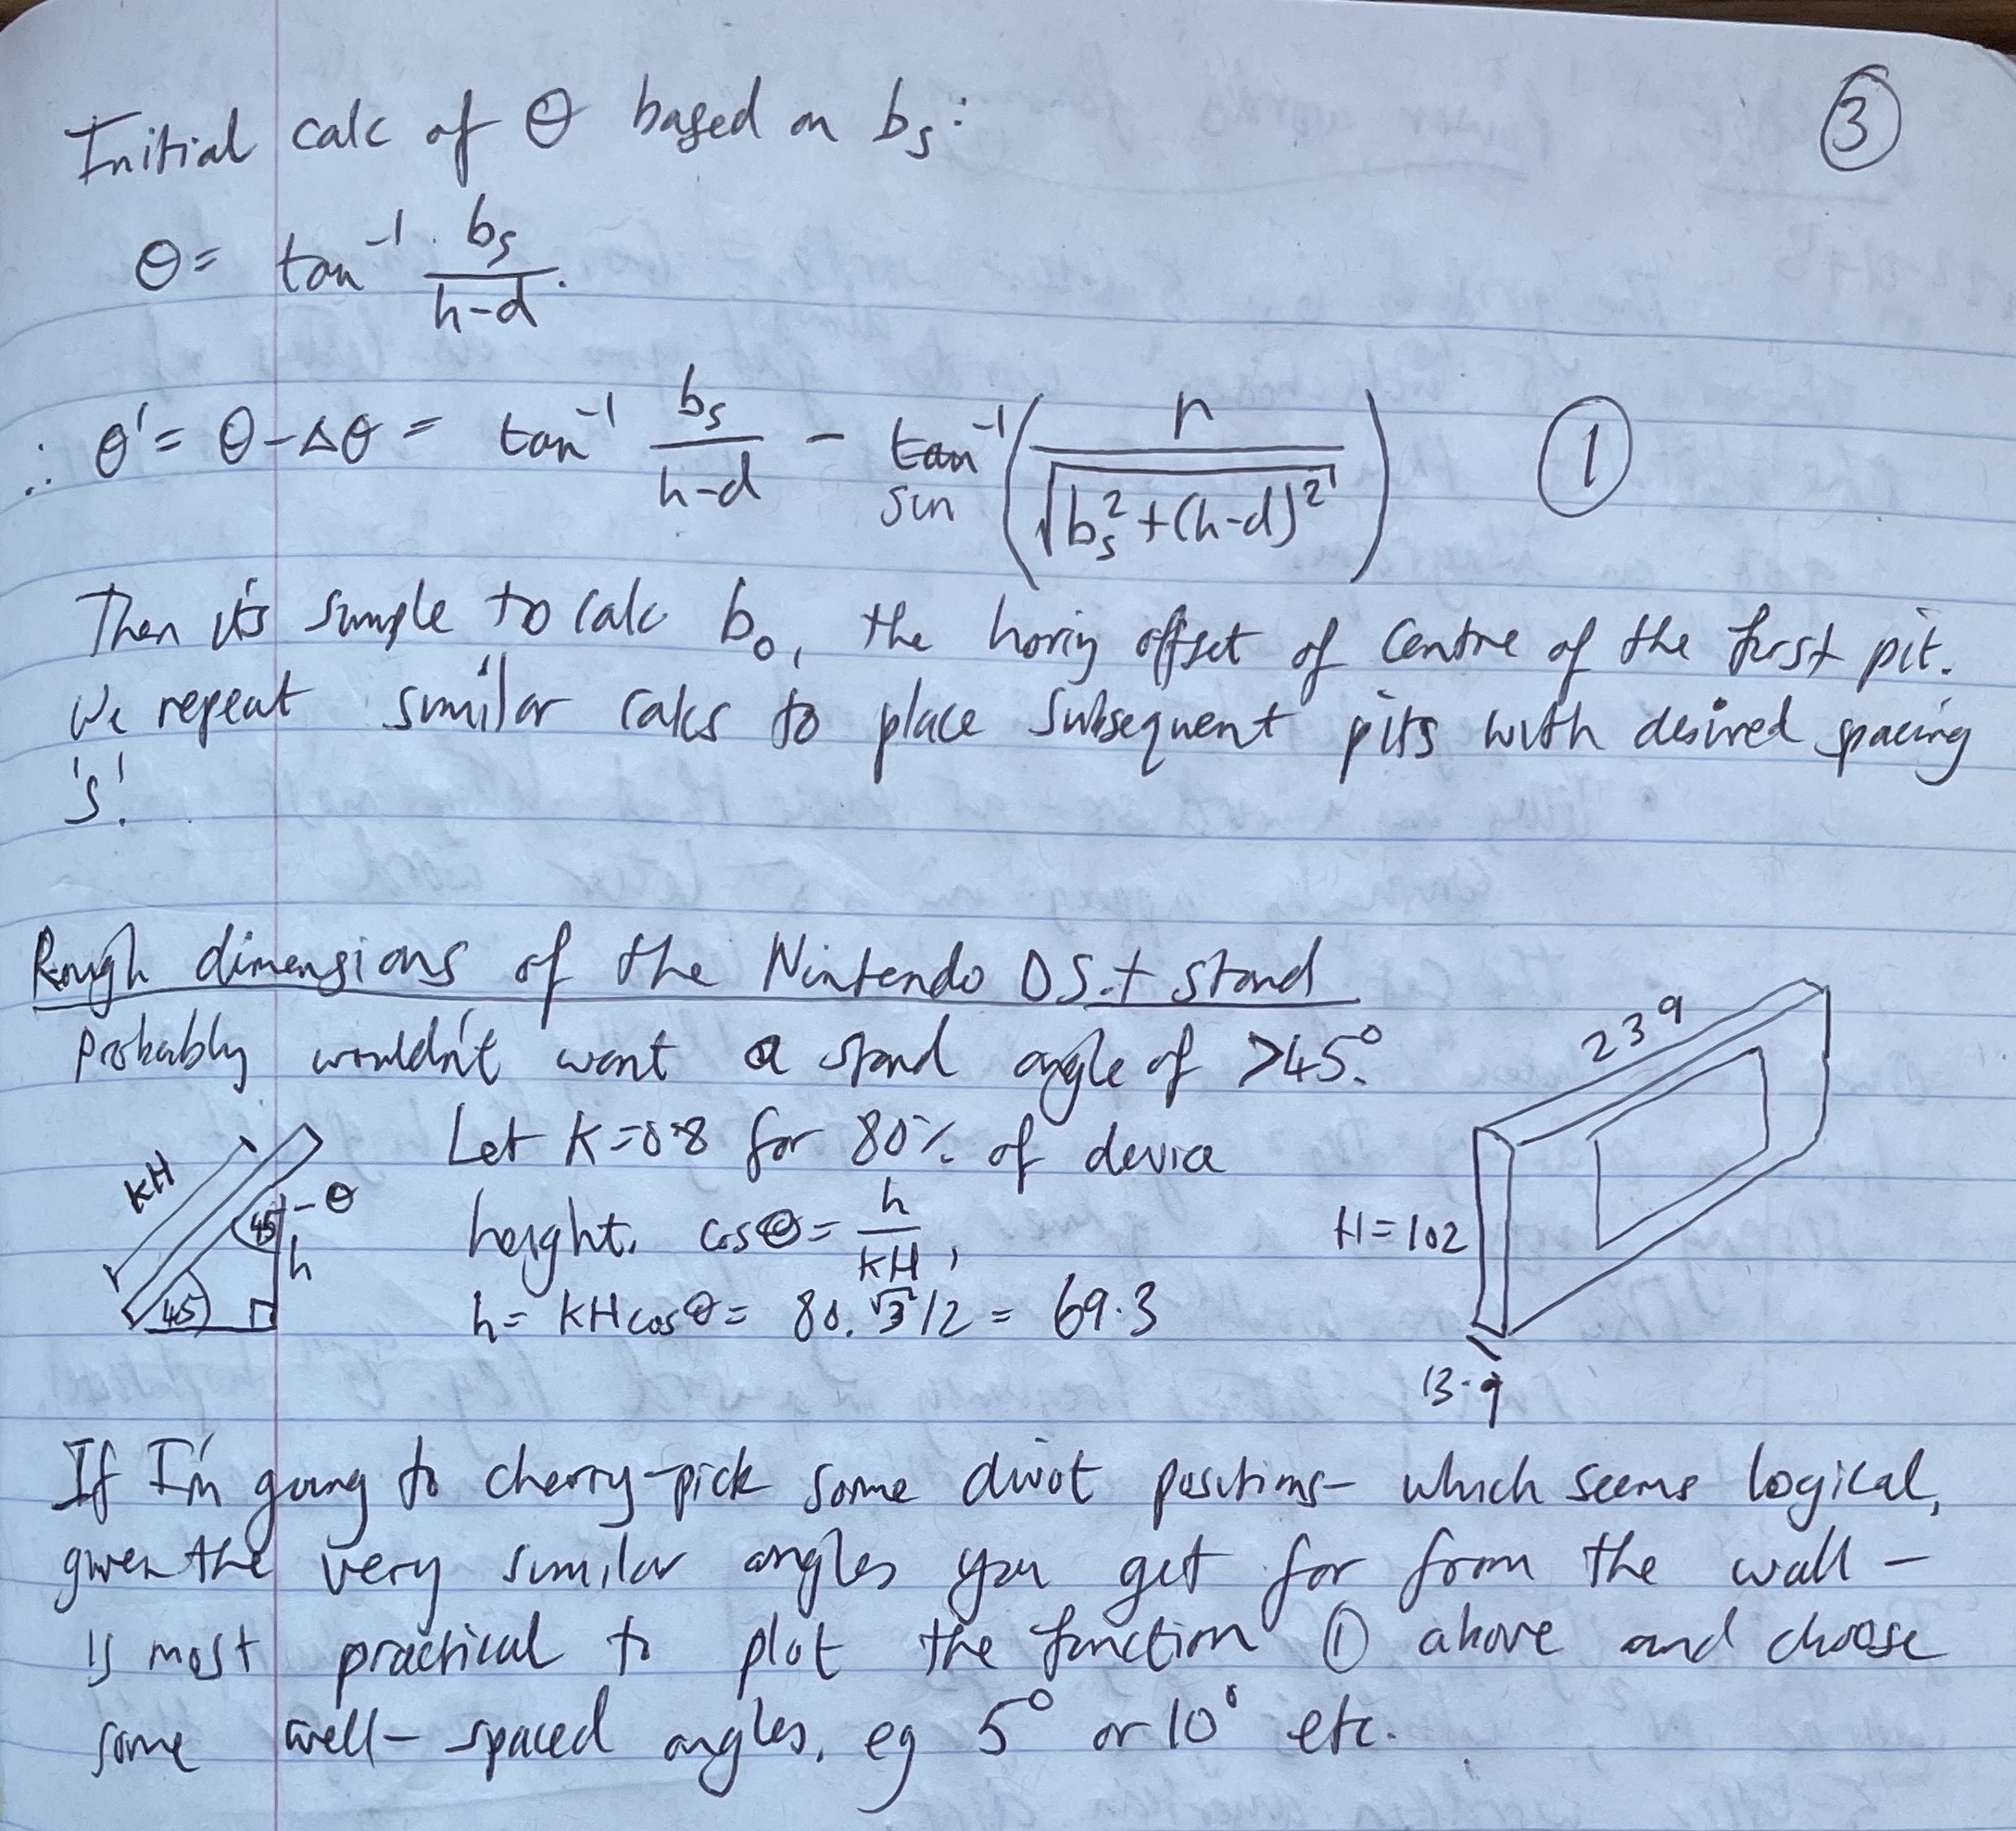 ③
Initial calc of θ based on bₛ:
θ = tan⁻¹ bₛ/(h-d).
∴ θ' = θ-Δθ = tan⁻¹ bₛ/(h-d) - sin⁻¹(r/√(bₛ²+(h-d)²)) ①
Then it's simple to calc b₀, the horiz offset of centre of the first pit.
We repeat similar calcs to place subsequent pits with desired spacing
's'.
Rough dimensions of the Nintendo DS.+ stand
Probably wouldn't want a stand angle of >45°.
Let K=0.8 for 80% of device
height. cosθ = h/KH,
h = KHcosθ = 80.√3/2 = 69.3
KH
45
θ
h
45
239
H=102
13.9
If I'm going to cherry-pick some divot positions - which seems logical,
given the very similar angles you get far from the wall -
is most practical to plot the function ① above and choose
some well-spaced angles, eg 5° or 10° etc.